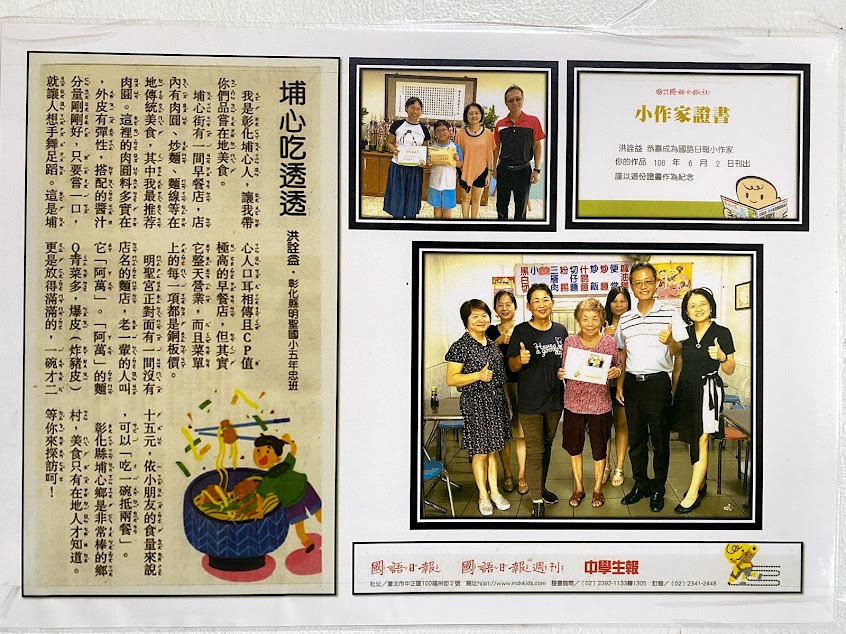 埔心吃透透
洪詮益・彰化縣明聖國小五年忠班
我是彰化埔心人,讓我帶
你們品嘗在地美食。
埔心街有一間早餐店,店
內有肉圓、炒麵、麵線等在
地傳統美食,其中我最推荐
肉圓。這裡的肉圓料多實在
,外皮有彈性,搭配的醬汁
分量剛剛好,只要嘗一口,
就讓人想手舞足蹈。這是埔
心人口耳相傳且CP值
極高的早餐店,但其實
它整天營業,而且菜單
上的每一項都是銅板價。
明聖宮正對面有一間沒有
店名的麵店,老一輩的人叫
它「阿萬」。「阿萬」的麵
Q青菜多,爆皮(炸豬皮)
更是放得滿滿的,一碗才二
十五元,依小朋友的食量來說
,可以「吃一碗抵兩餐」。
彰化縣埔心鄉是非常棒的鄉
村,美食只有在地人才知道。
等你來探訪呵!
國語日報社
小作家證書
洪詮益 恭喜成為國語日報小作家
你的作品 108 年 6 月 2 日刊出
謹以這份證書作為紀念
麻油雞
便當
炒飯
炒麵
什錦麵
切仔麵
粉腸
三層肉
小
黑白切
國語日報 國語日報週刊 中學生報
社址/臺北市中正區100福州街2號 網址http://www.mdnkids.com 證書詢問/(02)2392-1133轉1305 訂報/(02)2341-2448